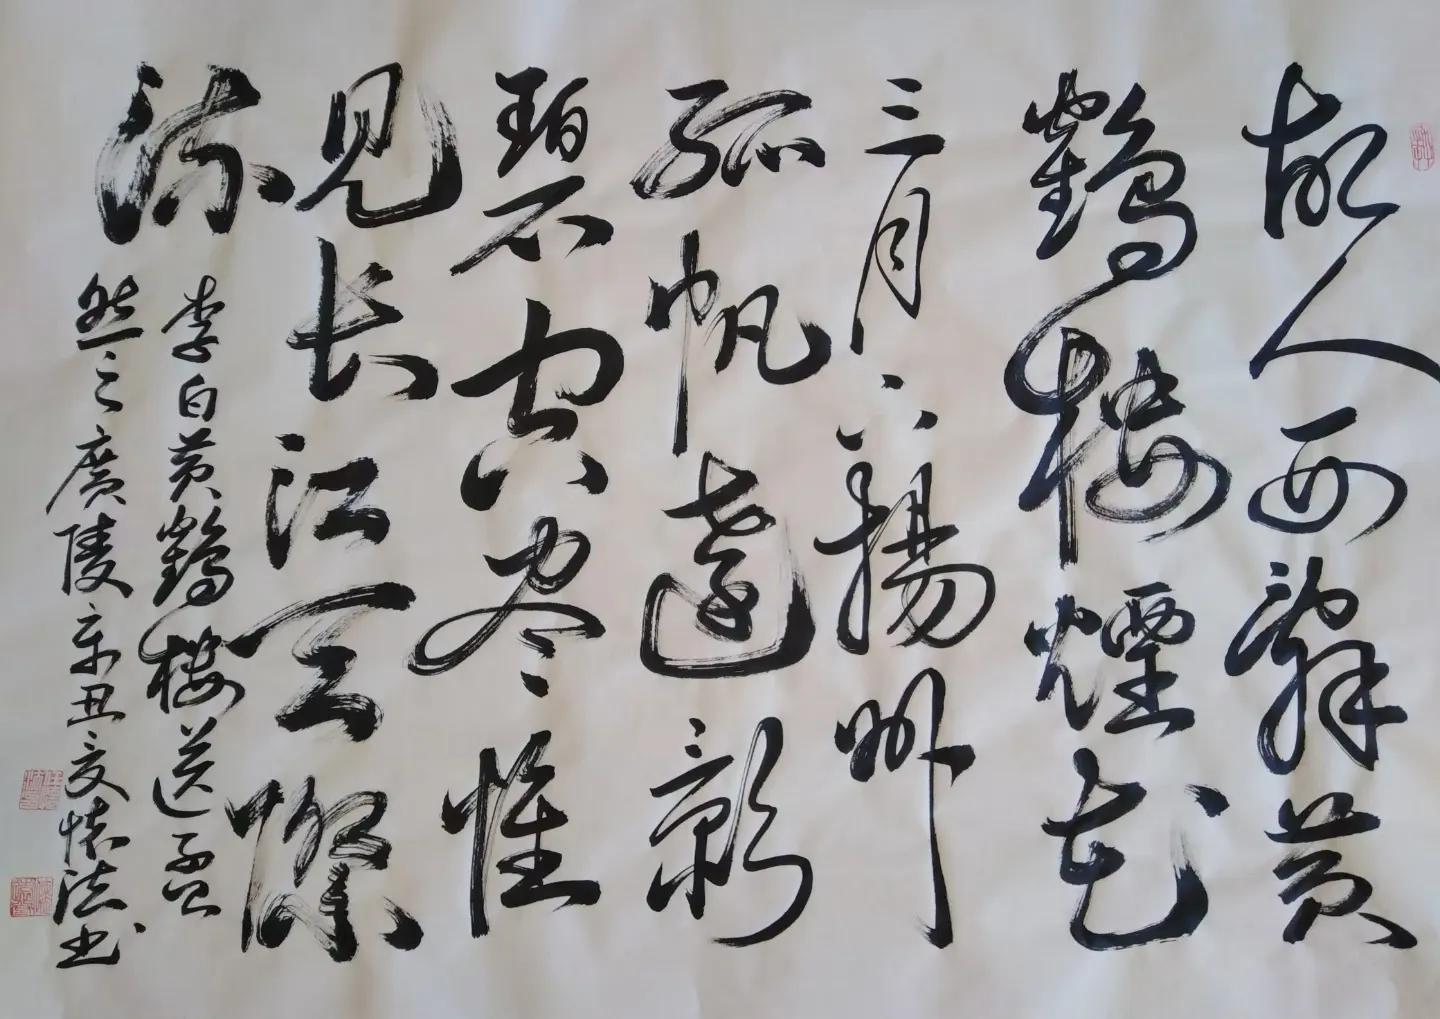 故人西辞黄
鹤楼煙花
三月下揚州
孤帆遠影
碧空尽惟
见长江天際
流
李白黄鹤楼送孟
然之廣陵辛丑文怀法书